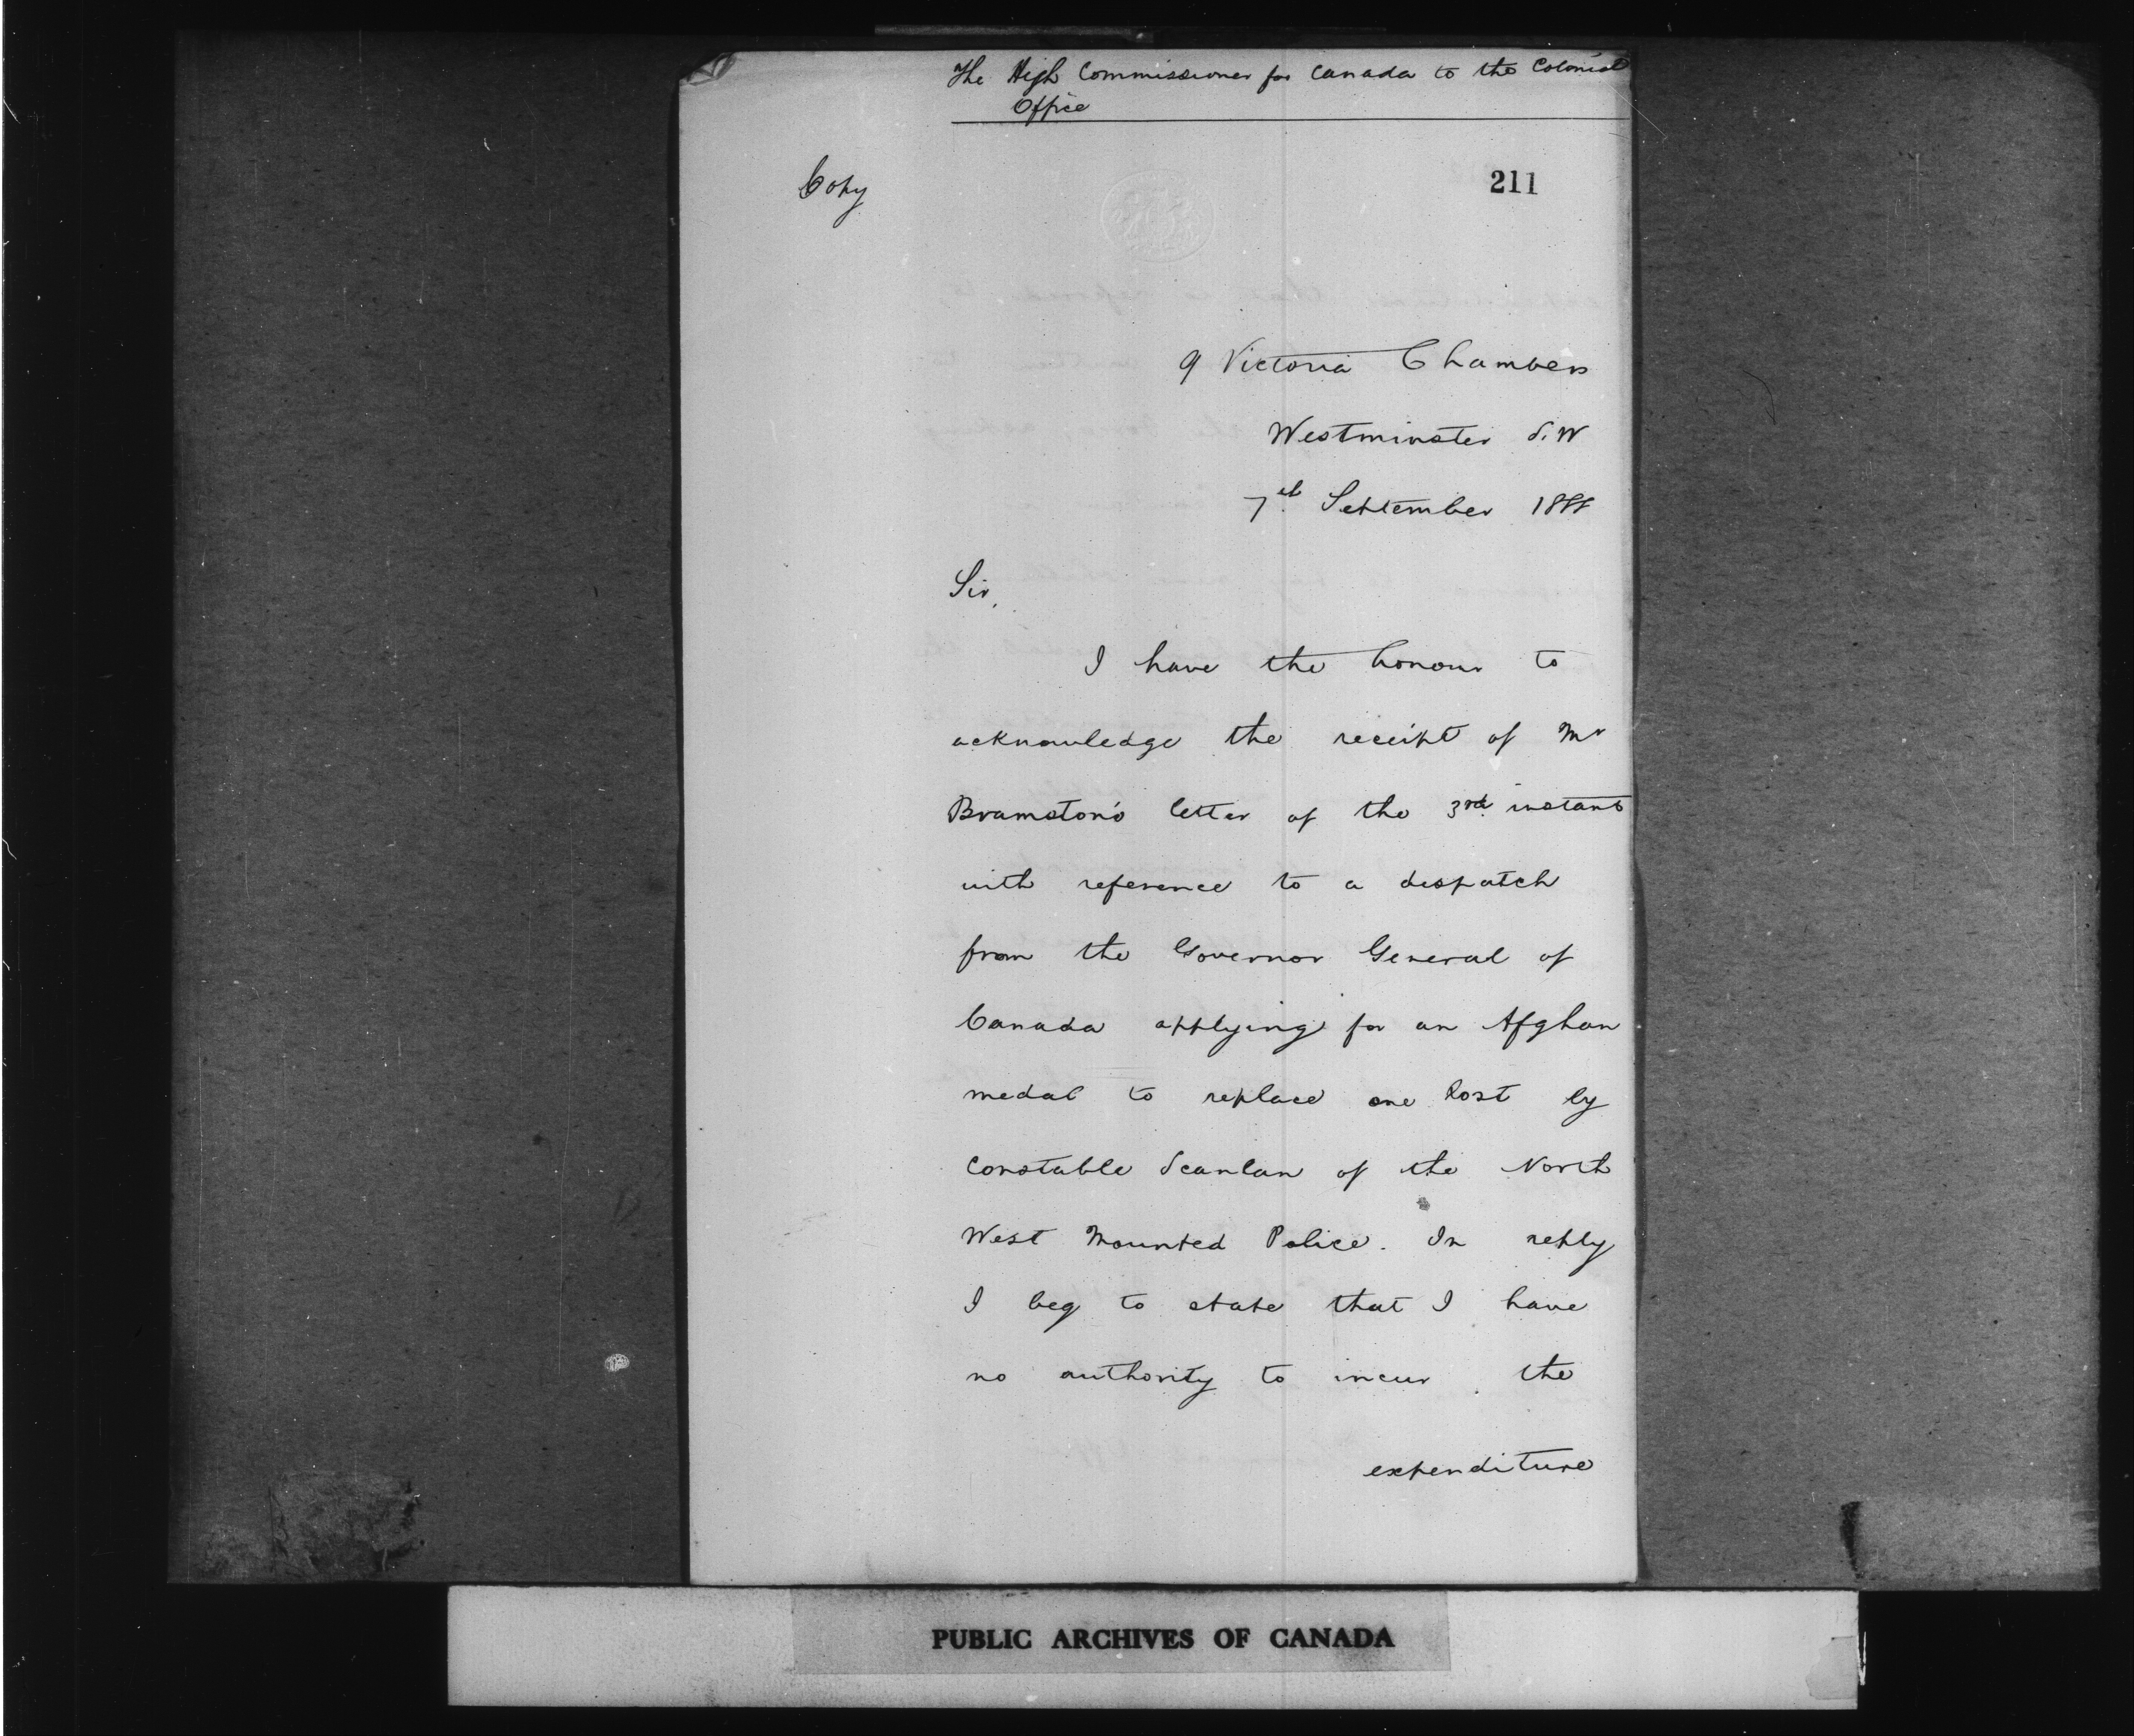 The High Commissioner for Canada to the Colonial
Office
Copy
211
9 Victoria Chambers
Westminster S.W
7th September 1888
Sir,
I have the honour to
acknowledge the receipt of Mr
Bramston's letter of the 3rd instant
with reference to a despatch
from the Governor General of
Canada applying for an Afghan
medal to replace one lost by
Constable Scanlan of the North
West Mounted Police. In reply
I beg to state that I have
no authority to incur the
expenditure
PUBLIC ARCHIVES OF CANADA